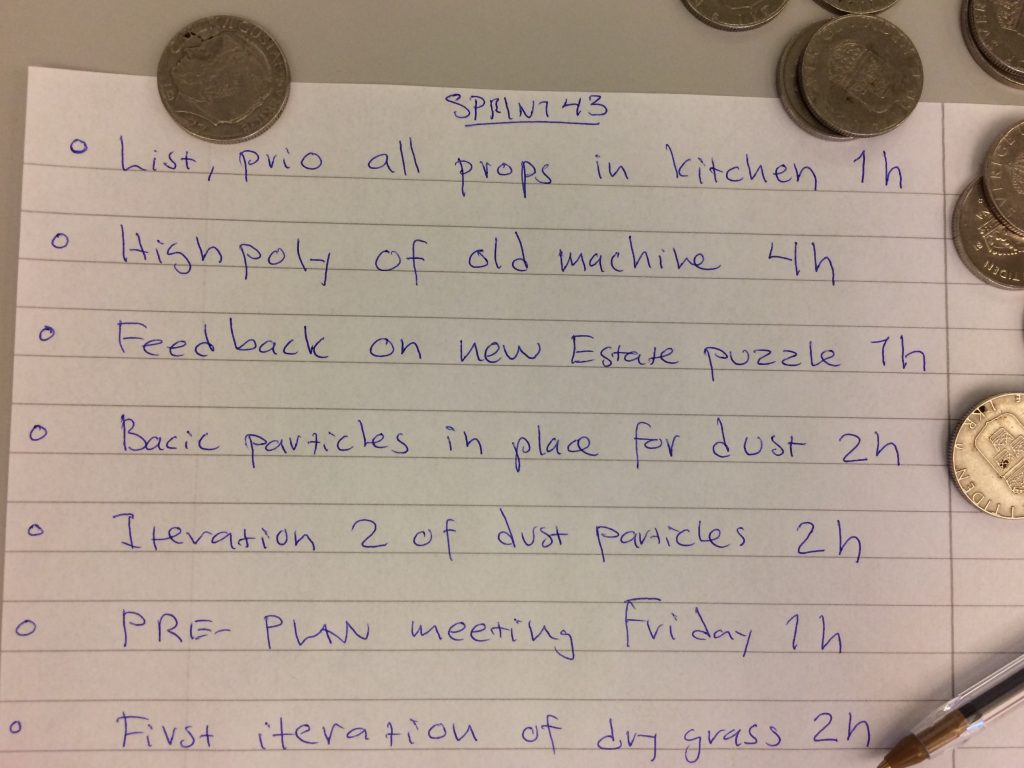 SPRINT 43
List, prio all props in kitchen 1h
High poly of old machine 4h
Feedback on new Estate puzzle 1h
Bacic particles in place for dust 2h
Iteration 2 of dust particles 2h
PRE-PLAN meeting Friday 1h
First iteration of dry grass 2h